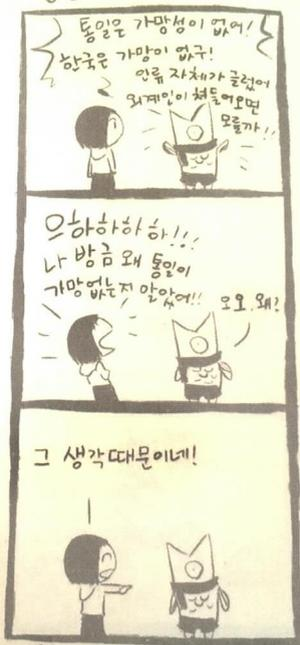 통일은 가망성이 없어!
한국은 가망이 없구!
인류 자체가 글렀어
외계인이 쳐들어오면
모를까!!
으하하하하!!!
나 방금 왜 통일이
가망없는지 알았어!!
오오. 왜?
그 생각때문이네!